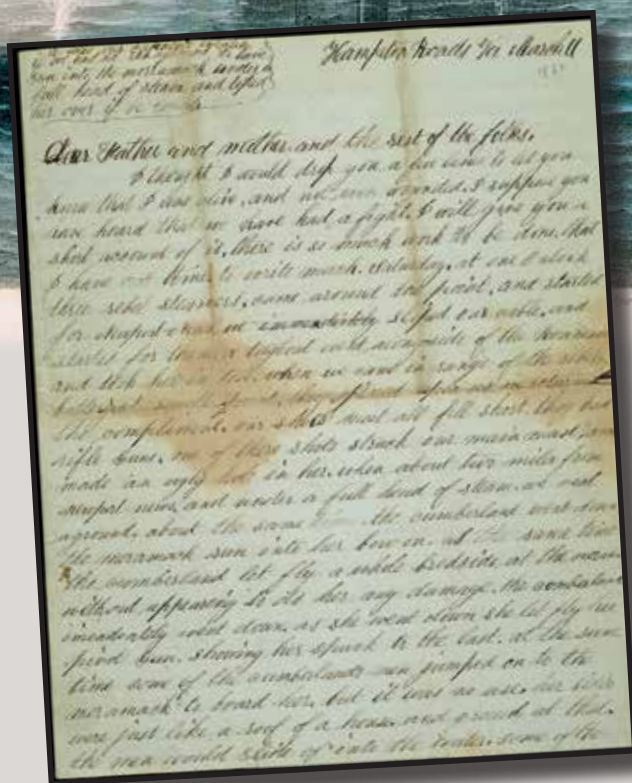 run into the moramack under a
full head of steam and lifted
her over
Hampton Roads Va. March 11
Dear Father and mother and the rest of the folks.
I thought I would drop you a few lines to let you
know that I am alive, and not even wounded. I suppose you
have heard that we have had a fight. I will give you a
short account of it. there is so much work to be done, that
I have not time to write much. Saturday at one O clock
three rebel steamers, came around the point, and started
for newport news, we immediately sliped our cable, and
started for a tugboat went alongside of the Roanoke
and took her in tow. when we came in range of the rebel
the compliment. our shots most all fell short. they had
rifle guns. one of there shots struck our main mast, and
made an ugly in her. when about two miles from
newport news, and under a full head of steam, we went
aground, about the same time the cumberland went down
the moramack run into her bow on. at the same time
the cumberland let fly a whole bredside at the
without appearing to do her any damage. the cumberland
imeadently went down. as she went down she let fly her
pivot gun. showing her spunk to the last. at the same
time some of the cumberlands men jumped on to the
moramack to board her, but it was no use. her sides
were just like a roof of a house. and around at that.
the men would slide of into the water. some of the